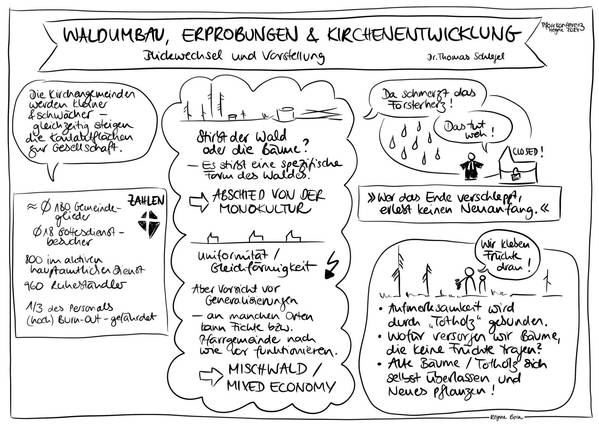 WALDUMBAU, ERPROBUNGEN & KIRCHENENTWICKLUNG
Blickwechsel und Vorstellung
Dr. Thomas Schlegel
Pfarrkonferenz
2023
Die Kirchengemeinden
werden kleiner
& schwächer –
gleichzeitig steigen
die Kontaktflächen
zur Gesellschaft.
ZAHLEN
≈ Ø 180 Gemeinde-
glieder
Ø 18 Gottesdienst-
besucher
800 im aktiven
hauptamtlichen Dienst
960 Ruheständler
1/3 des Personals
(hoch) Burn-Out-gefährdet
Stirbt der Wald
oder die Bäume?
– Es stirbt eine spezifische
Form des Waldes.
ABSCHIED VON DER
MONOKULTUR
Uniformität /
Gleichförmigkeit
Aber Vorsicht vor
Generalisierungen
– an manchen Orten
kann Fichte bzw.
Pfarrgemeinde nach
wie vor funktionieren.
MISCHWALD /
MIXED ECONOMY
Da schmerzt das
Försterherz!
Das tut
weh!
CLOSED!
»Wer das Ende verschleppt,
erlebt keinen Neuanfang.«
Wir kleben
Früchte
dran!
• Aufmerksamkeit wird
durch „Totholz" gebunden.
• Wofür versorgen wir Bäume,
die keine Früchte tragen?
• Alte Bäume / Totholz sich
selbst überlassen und
Neues pflanzen!